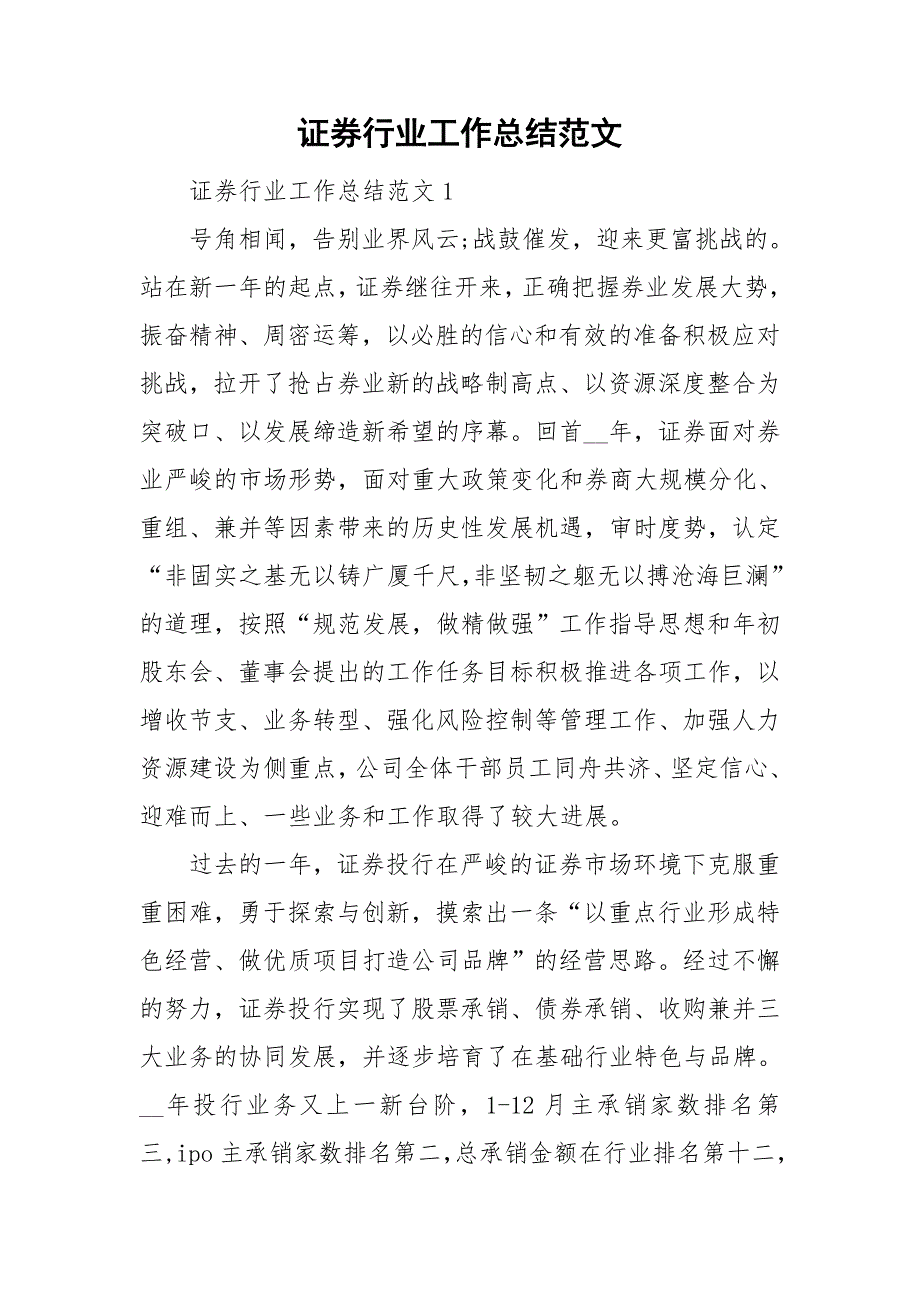 证券行业工作总结范文
证券行业工作总结范文1
号角相闻，告别业界风云;战鼓催发，迎来更富挑战的。
站在新一年的起点，证券继往开来，正确把握券业发展大势，
振奋精神、周密运筹，以必胜的信心和有效的准备积极应对
挑战，拉开了抢占券业新的战略制高点、以资源深度整合为
突破口、以发展缔造新希望的序幕。回首__年，证券面对券
业严峻的市场形势，面对重大政策变化和券商大规模分化、
重组、兼并等因素带来的历史性发展机遇，审时度势，认定
“非固实之基无以铸广厦千尺，非坚韧之躯无以搏沧海巨澜”
的道理，按照“规范发展，做精做强”工作指导思想和年初
股东会、董事会提出的工作任务目标积极推进各项工作，以
增收节支、业务转型、强化风险控制等管理工作、加强人力
资源建设为侧重点，公司全体干部员工同舟共济、坚定信心、
迎难而上、一些业务和工作取得了较大进展。
过去的一年，证券投行在严峻的证券市场环境下克服重
重困难，勇于探索与创新，摸索出一条“以重点行业形成特
色经营、做优质项目打造公司品牌”的经营思路。经过不懈
的努力，证券投行实现了股票承销、债券承销、收购兼并三
大业务的协同发展，并逐步培育了在基础行业特色与品牌。
__年投行业务又上一新台阶，1-12月主承销家数排名第
三,ipo主承销家数排名第二,总承销金额在行业排名第十二，